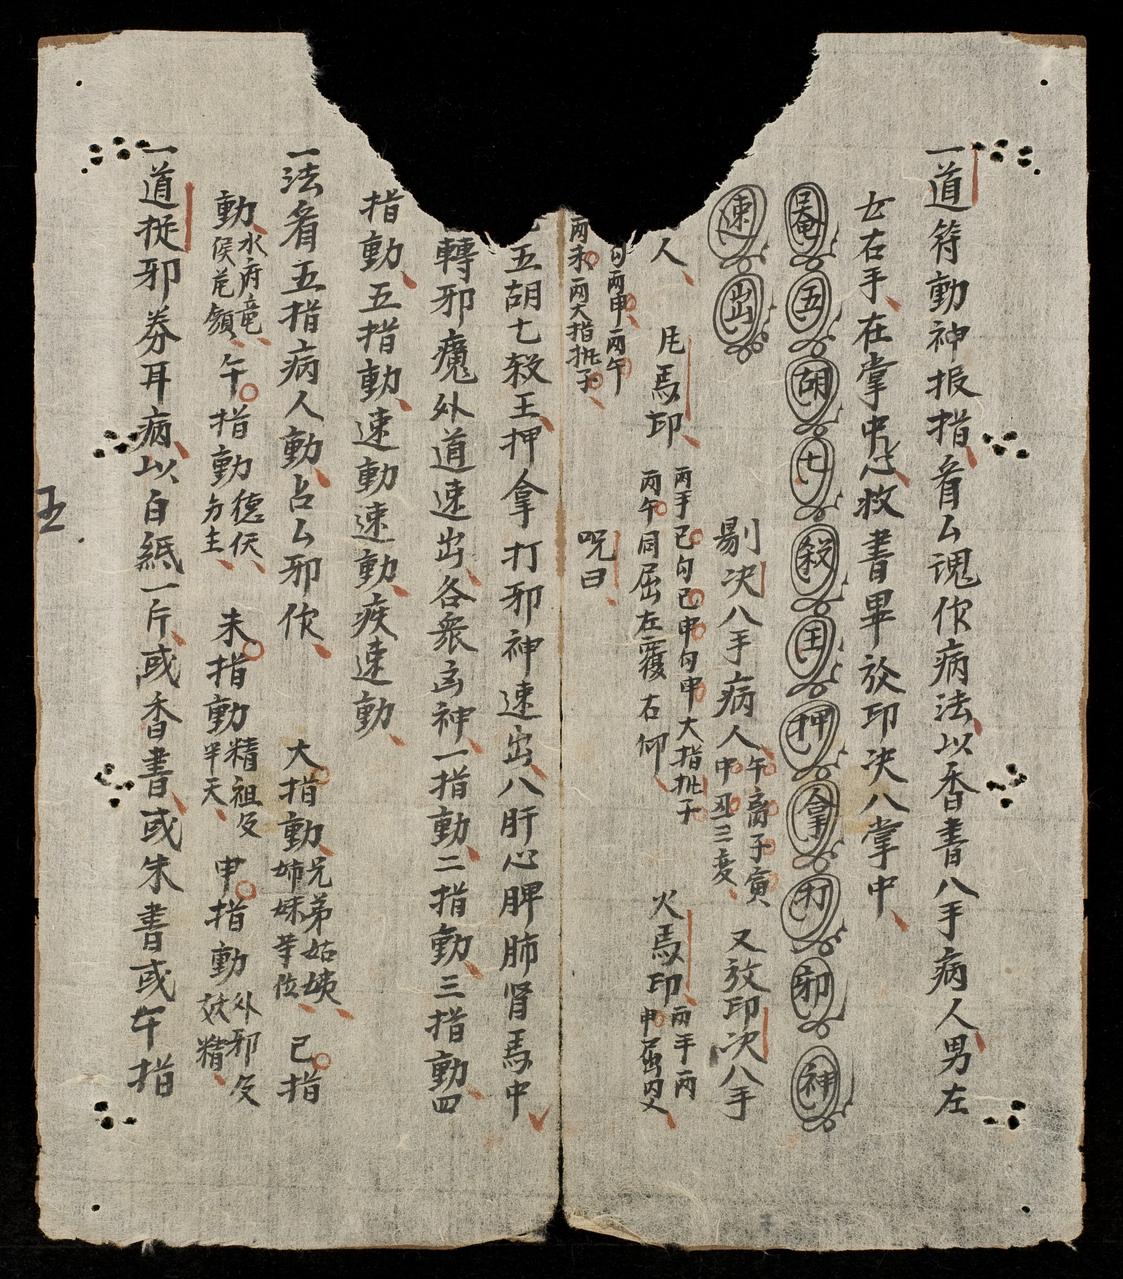 一道符動神报指看么魂作病法以香書八手病人男左
女右手在掌中心救書畢放印决八掌中
奄五胡七殺王押拿打邪神
速出
剔决八手病人午離子寅
申丑三变
又放印决八手
人
凭馬印
两手已勾已申勾申大指批子
两午同屈左覆右仰
火馬印
两手两
申屈内又
勾两申两午
两未两大指批子
呪曰
五胡七殺王押拿打邪神速出八肝心脾肺肾馬中
轉邪魔外道速出各衆玄神一指動二指動三指動四
指動五指動速動速動疾速動
一法看五指病人動占么邪作
大指動兄弟姑姨
姉妹等位
已指
動水府竜
侯庇鎮
午指動德伏
方主
未指動精祖父
半天
申指動外邪父
妖精
一道捉邪券耳病以白紙一斤或香書或朱書或午指
五